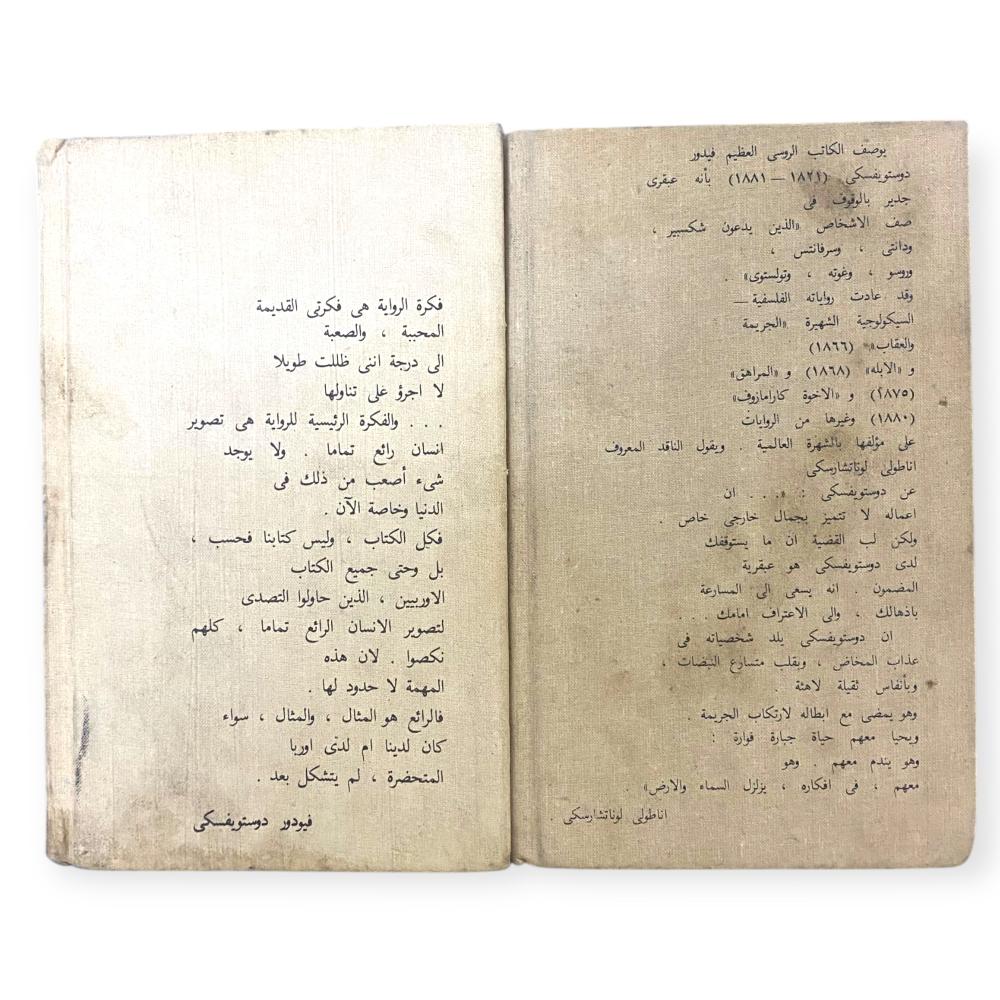 يوصف الكاتب الروسى العظيم فيدور
دوستويفسكى (١٨٢١ – ١٨٨١) بأنه عبقرى
جدير بالوقوف فى
صف الاشخاص «الذين يدعون شكسبير ،
ودانتى ، وسرفانتس ،
وروسو ، وغوته ، وتولستوى» .
وقد عادت رواياته الفلسفية —
السيكولوجية الشهيرة «الجريمة
والعقاب» (١٨٦٦)
و «الابله» (١٨٦٨) و «المراهق»
(١٨٧٥) و «الاخوة كارامازوف»
(١٨٨٠) وغيرها من الروايات
على مؤلفها بالشهرة العالمية . ويقول الناقد المعروف
اناطولى لوناتشارسكى
عن دوستويفسكى : « . . . ان
اعماله لا تتميز بجمال خارجى خاص .
ولكن لب القضية ان ما يستوقفك
لدى دوستويفسكى هو عبقرية
المضمون . انه يسعى الى المسارعة
باذهالك ، والى الاعتراف امامك . . .
ان دوستويفسكى يلد شخصياته فى
عذاب المخاض ، وبقلب متسارع النبضات ،
وبأنفاس ثقيلة لاهثة .
وهو يمضى مع ابطاله لارتكاب الجريمة .
ويحيا معهم حياة جبارة فوارة :
وهو يندم معهم . وهو
معهم ، فى افكاره ، يزلزل السماء والارض» .
اناطولى لوناتشارسكى .
فكرة الرواية هى فكرتى القديمة
المحببة ، والصعبة
الى درجة اننى ظللت طويلا
لا اجرؤ على تناولها
. . . والفكرة الرئيسية للرواية هى تصوير
انسان رائع تماما . ولا يوجد
شىء أصعب من ذلك فى
الدنيا وخاصة الآن .
فكل الكتاب ، وليس كتابنا فحسب ،
بل وحتى جميع الكتاب
الاوربيين ، الذين حاولوا التصدى
لتصوير الانسان الرائع تماما ، كلهم
نكصوا . لان هذه
المهمة لا حدود لها .
فالرائع هو المثال ، والمثال ، سواء
كان لدينا ام لدى اوربا
المتحضرة ، لم يتشكل بعد .
فيودور دوستويفسكى